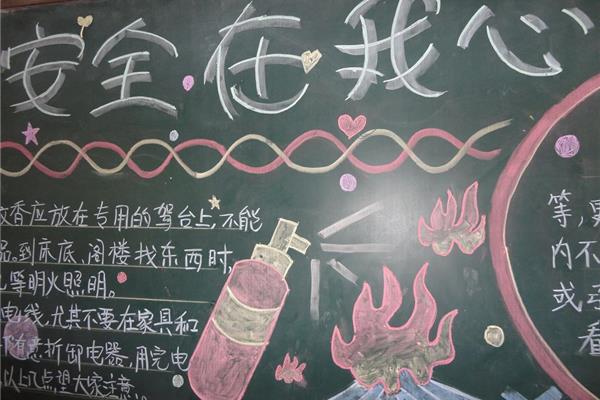 安全在我心
蚊香应放在专用的驾台上,不能
品,到床底、阁楼找东西时,
等明火照明。
电线,尤其不要在家具和
随意拆卸电器,用完电
以上几点望大家注意。
等,
内不
或
看